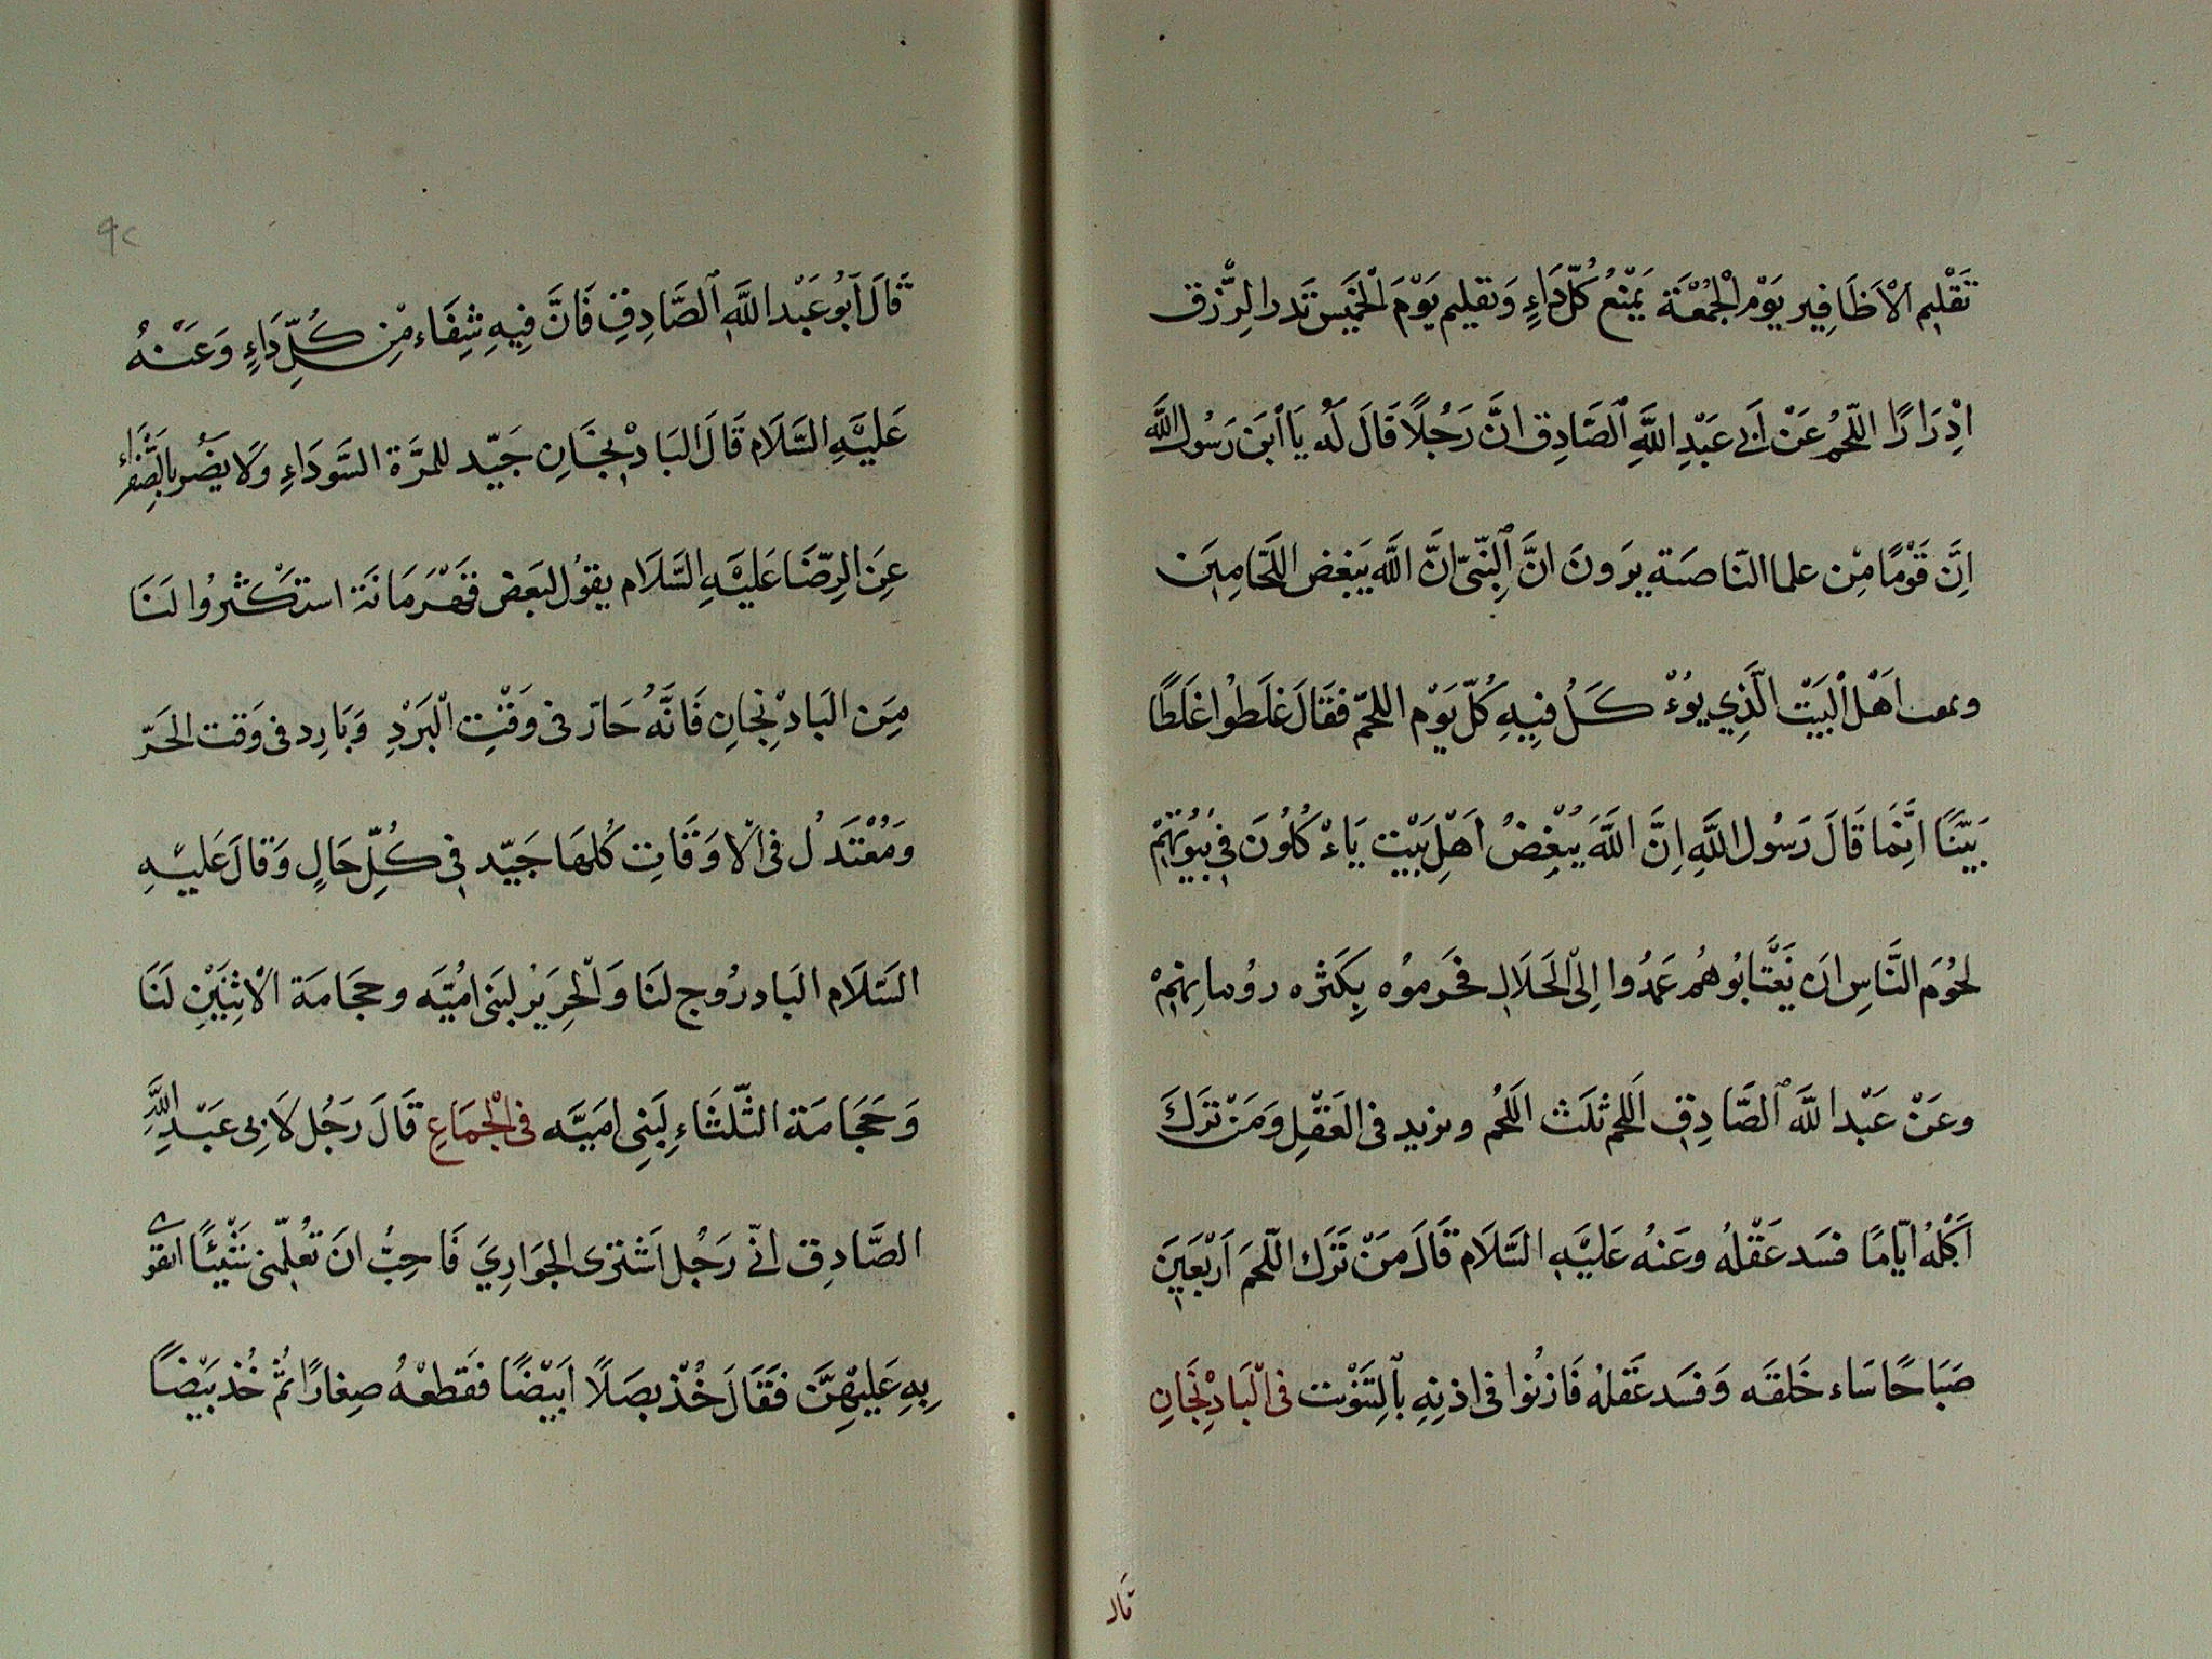 تَقْلِيم الْاَظَافِير يَوْم الْجُمُعَة يَمْنَعُ كُلّ دَاءٍ وَتقليم يَوْمَ الْخَمِيس تَدر الرِّزق
اِدْرَارًا اللّحمُ عَنْ اَبِي عَبْدِ اللَّهِ الصَّادِق انَّ رَجُلًا قَالَ لَه يَا ابْنَ رَسُول اللَّه
اِنَّ قَوْمًا مِنْ علما النّاصبَة يرَوونَ انَّ النَّبِىّ انَّ اللَّه يَبغض اللَّحَامِينَ
اَهْل الْبَيْت الَّذِي يُوءْكَلُ فِيهِ كُلّ يَوْم اللحمّ فقَالَ غلَطُوا غَلَطًا
بَيّنًا انَّمَا قَالَ رَسُول اللَّهِ اِنَّ اللَّهَ يُبْغِضُ اَهْلَ بَيْت يَاءْكُلُونَ فِي بُيُوتِهِمْ
لحُومَ النَّاسِ ان يَغْتَابُوهُم عَمَدُوا اِلىَ الْحَلَالِ فحَرموُه بِكَثره رِوَاياتِهِمْ
وعَنْ عَبْد اللَّه الصَّادِق اَللحم ثلَث اللَحُم ويزيد فى العَقْلِ وَمَنْ تَرَكَ
اَكْلَهُ ايّامًا فسَد عَقْلهُ وعَنهُ عَليَهِ السَّلَام قَالَ مَنْ تَرَك اللّحمَ اَرْبَعَينَ
صَبَاحًا سَاء خَلقَه وَفسَد عَقلهُ فَاذنُوا فى اذنِهِ بالِتَثوْيت فى الْبَادْنجَانِ
قال
٩٢
قالَ اَبُو عَبْد اللَّه الصَّادِق فَانَّ فِيهِ شِفَاء مْن كُلّ دَاءٍ وَعَنْهُ
عَليَهِ السَّلَام قَالَ البَادْنجَان جَيّد للمرَّة السَّودَاءِ وَلَا يضُر بالصَّفرَاء
عَنِ الرِّضَا عَليَهِ السَّلَام يقوُل لبَعض قَهْرَمَانَة استكْثرُوا لنَا
مِنَ البَادْنجَانِ فَانَّهُ حَارّ فى وَقْتِ الْبَرْدِ وَبَارِد فى وَقت الحَرّ
وَمُعْتَدلُ فى الْاوقَاتِ كُلهَا جَيّد فى كُلِّ حَالٍ وَقالَ عَليْهِ
السَّلَام البَادرُوج لنَا وَالْجِرَيْرُ لبَنى امُيَّه وحجَامَة الْاثْنَيْنِ لَنَا
وَحَجَامَة الثّلثَاءِ لِبَنِى امَيَّه فى الْجمَاعِ قَالَ رَجُل لَابى عَبْد اللَّهِ
الصَّادِق انّى رَجُل اَشْترى الجَوَارِيَ فَاحِبُّ انَ تُعلّمَنى شَيْئًا اتقوى
بِهِ عَليْهِنَّ فقَالَ خُذْ بصَلًا اَبَيْضًا فَقَطعْهُ صِغارًا ثُمّ خُذ بَيْضاً